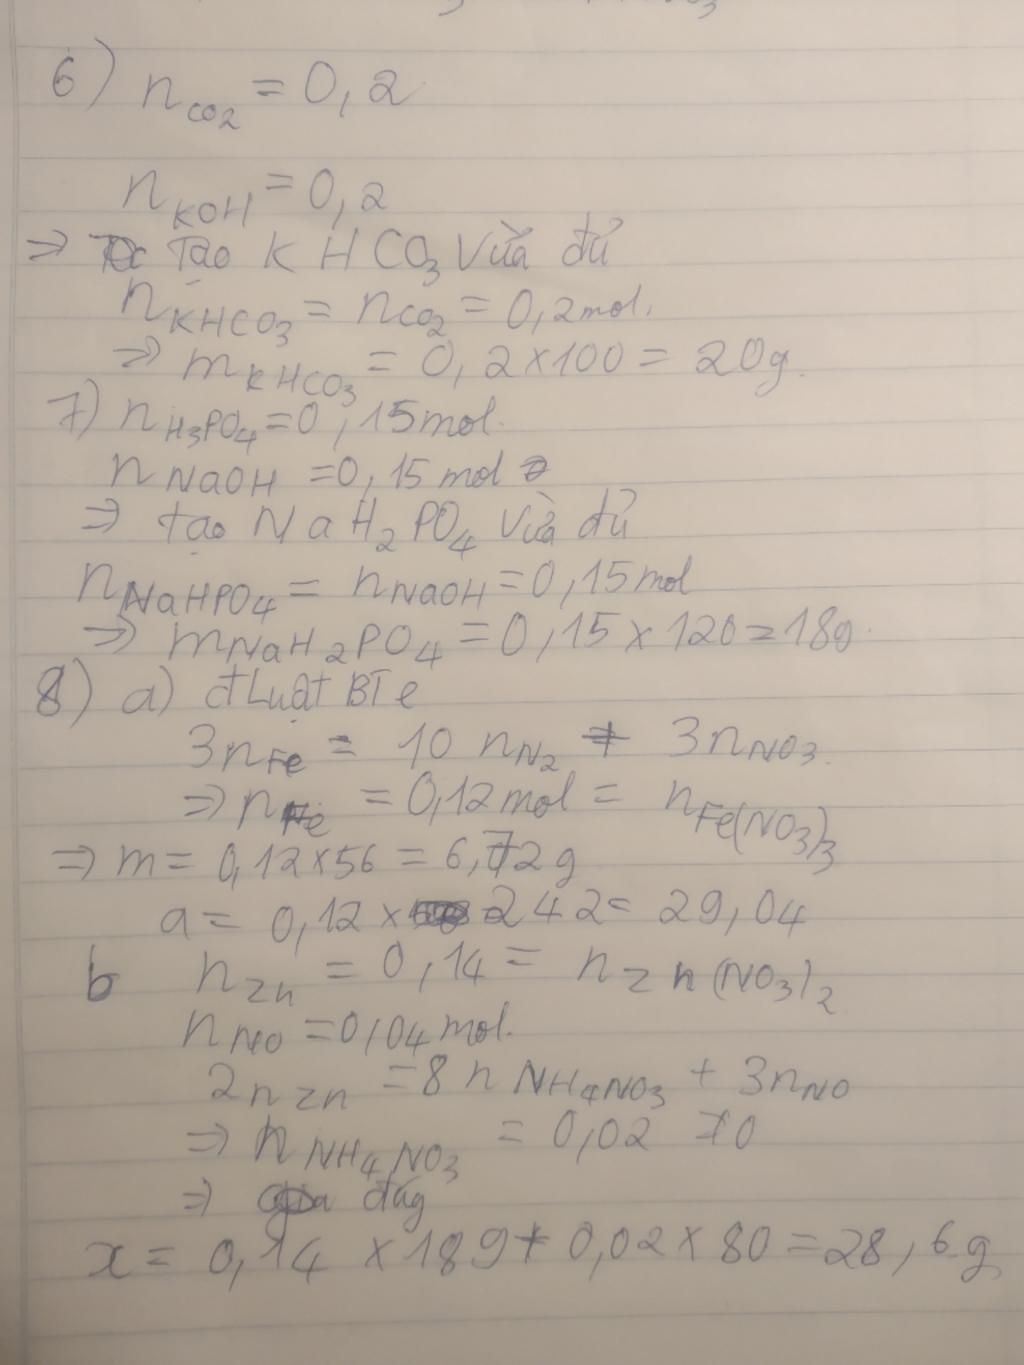 6) n CO2 = 0,2
n KOH = 0,2
=> Tạo KHCO3 vừa đủ
n KHCO3 = n CO2 = 0,2 mol.
=> m KHCO3 = 0,2 x 100 = 20g.
7) n H3PO4 = 0,15 mol.
n NaOH = 0,15 mol
=> tạo NaH2PO4 vừa đủ
n NaHPO4 = n NaOH = 0,15 mol
=> m NaH2PO4 = 0,15 x 120 = 18g.
8) a) đluật BT e
3n Fe = 10 n N2 + 3n NO3.
=> n Fe = 0,12 mol = n Fe(NO3)3
=> m = 0,12 x 56 = 6,72g
a = 0,12 x 242 = 29,04
b n Zn = 0,14 = n Zn(NO3)2
n NO = 0,04 mol.
2n Zn = 8 n NH4NO3 + 3n NO
=> n NH4NO3 = 0,02 ≠ 0
=> đúg
x = 0,14 x 189 + 0,02 x 80 = 28,6g